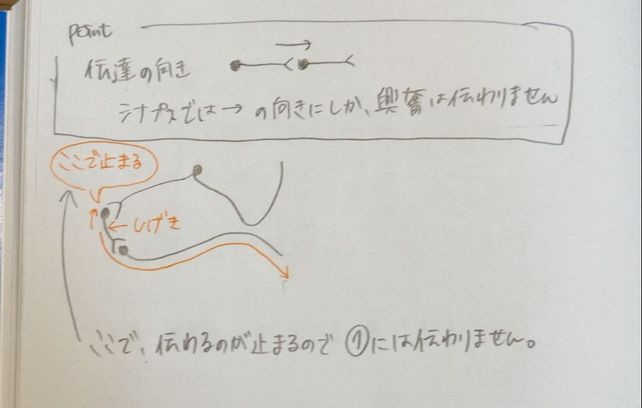 point
伝達の向き
シナプスでは→の向きにしか、興奮は伝わりません
ここで止まる
しげき
ここで、伝わるのが止まるので ①には伝わりません。